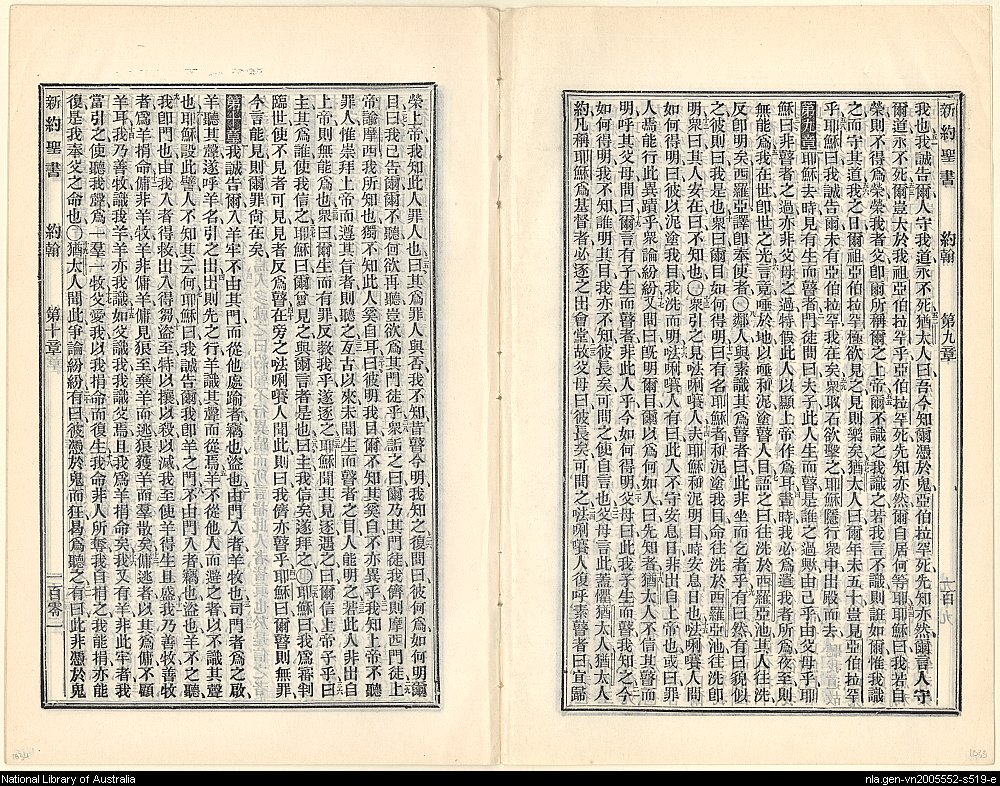 新約聖書 約翰 第九章
我也我誠告爾人守我道永不死猶太人曰吾今知爾憑於鬼亞伯拉罕死先知亦然爾言人守
爾道永不死爾豈大於我祖亞伯拉罕乎亞伯拉罕死先知亦然爾自居何等耶耶穌曰我若自
榮則不得為榮榮我者父卽爾所稱爾之上帝爾不識之我識之若我言不識則誑如爾惟我識
之而守其道我之日爾祖亞伯拉罕極欲見之見則樂矣猶太人曰爾年未五十豈見亞伯拉罕
乎耶穌曰我誠告爾未有亞伯拉罕我在矣衆取石欲擊之耶穌隱行衆中出殿而去
第九章耶穌去時見有生而瞽者門徒問曰夫子此人生而瞽是誰之過歟由己乎由父母乎耶
穌曰非瞽者之過亦非父母之過特假此人以顯上帝作為耳晝時我必為遣我者所為夜至則
無能為我在世卽世之光言竟唾於地以唾和泥塗瞽人目語之曰往洗於西羅亞池其人往洗
反卽明矣西羅亞譯卽奉使者鄰人與素識其為瞽者曰此非坐而乞者乎有曰然有曰貌似
之彼則曰我是也衆曰爾目如何得明曰有名耶穌者和泥塗我目命往洗於西羅亞池往洗卽
明衆曰其人安在曰不知也衆引之見𠵽唎㘔人夫耶穌和泥明目時安息日也𠵽唎㘔人問
如何得明曰彼以泥塗我目我洗而明𠵽唎㘔人有曰此人不守安息日非出自上帝也或曰罪
人焉能行此異蹟乎衆論紛紛又問曰旣明爾目爾以為何如人曰先知者猶太人不信其瞽而
明呼其父母問曰爾言有子生而瞽者非此人乎今如何得明父母曰此我子生而瞽我知之今
如何得明我不知誰明其目我亦不知彼長矣可問之使自言也父母言此蓋懼猶太人猶太人
約凡稱耶穌為基督者必逐之出會堂故父母曰彼長矣可問之𠵽唎㘔人復呼素瞽者曰宜歸
榮上帝我知此人罪人也曰其為罪人與否我不知昔瞽今明我知之復問曰彼何為如何明爾
目曰我已告爾爾不聽何欲再聽豈欲為其門徒乎衆詬之曰爾乃其門徒我儕則摩西門徒上
帝諭摩西我所知也獨不知此人奚自耳曰彼明我目爾不知其奚自不亦異乎我知上帝不聽
罪人惟崇拜上帝而遵其旨者則聽之亙古以來未聞生而瞽者之目人能明之若此人非出自
上帝則無能為也衆曰爾生而有罪反教我乎遂逐之耶穌聞其見逐遇之曰爾信上帝子乎曰
主其為誰使我信之耶穌曰爾曾見之與爾言者是也曰主我信矣遂拜之耶穌曰我為審判
臨世使不見者可見見者反為瞽在旁之𠵽唎㘔人聞此則曰我儕亦瞽乎耶穌曰爾瞽則無罪
今言能見則爾罪尚在矣
第十章我誠告爾入羊牢不由其門而從他處踰者竊也盜也由門入者羊牧也司門者為之啟
羊聽其聲遂呼羊名引之出出則先之行羊識其聲而從焉羊不從他人而避之者以不識其聲
也耶穌設此譬人不知其云何耶穌曰我誠告爾我卽羊之門不由門入者竊也盜也羊不之聽
我卽門也由我入者得救出入得芻盜至特以攘以殺以滅我至使羊得生且盛我乃善牧善牧
者為羊捐命傭非羊牧羊非傭羊傭見狼至棄羊而逃狼獲羊而羣散矣傭逃者以其為傭不顧
羊耳我乃善牧識我羊羊亦我識如父識我我識父焉且我為羊捐命矣我又有羊非此牢者我
當引之使聽我聲為一羣一牧父愛我以我捐命而復生我命非人所奪我自捐之我能捐亦能
復是我奉父之命也猶太人聞此爭論紛紛有曰彼憑於鬼而狂曷為聽之有曰此非憑於鬼
新約聖書 約翰 第十章 一百零一
National Library of Australia
nla.gen-vn2005552-s519-e